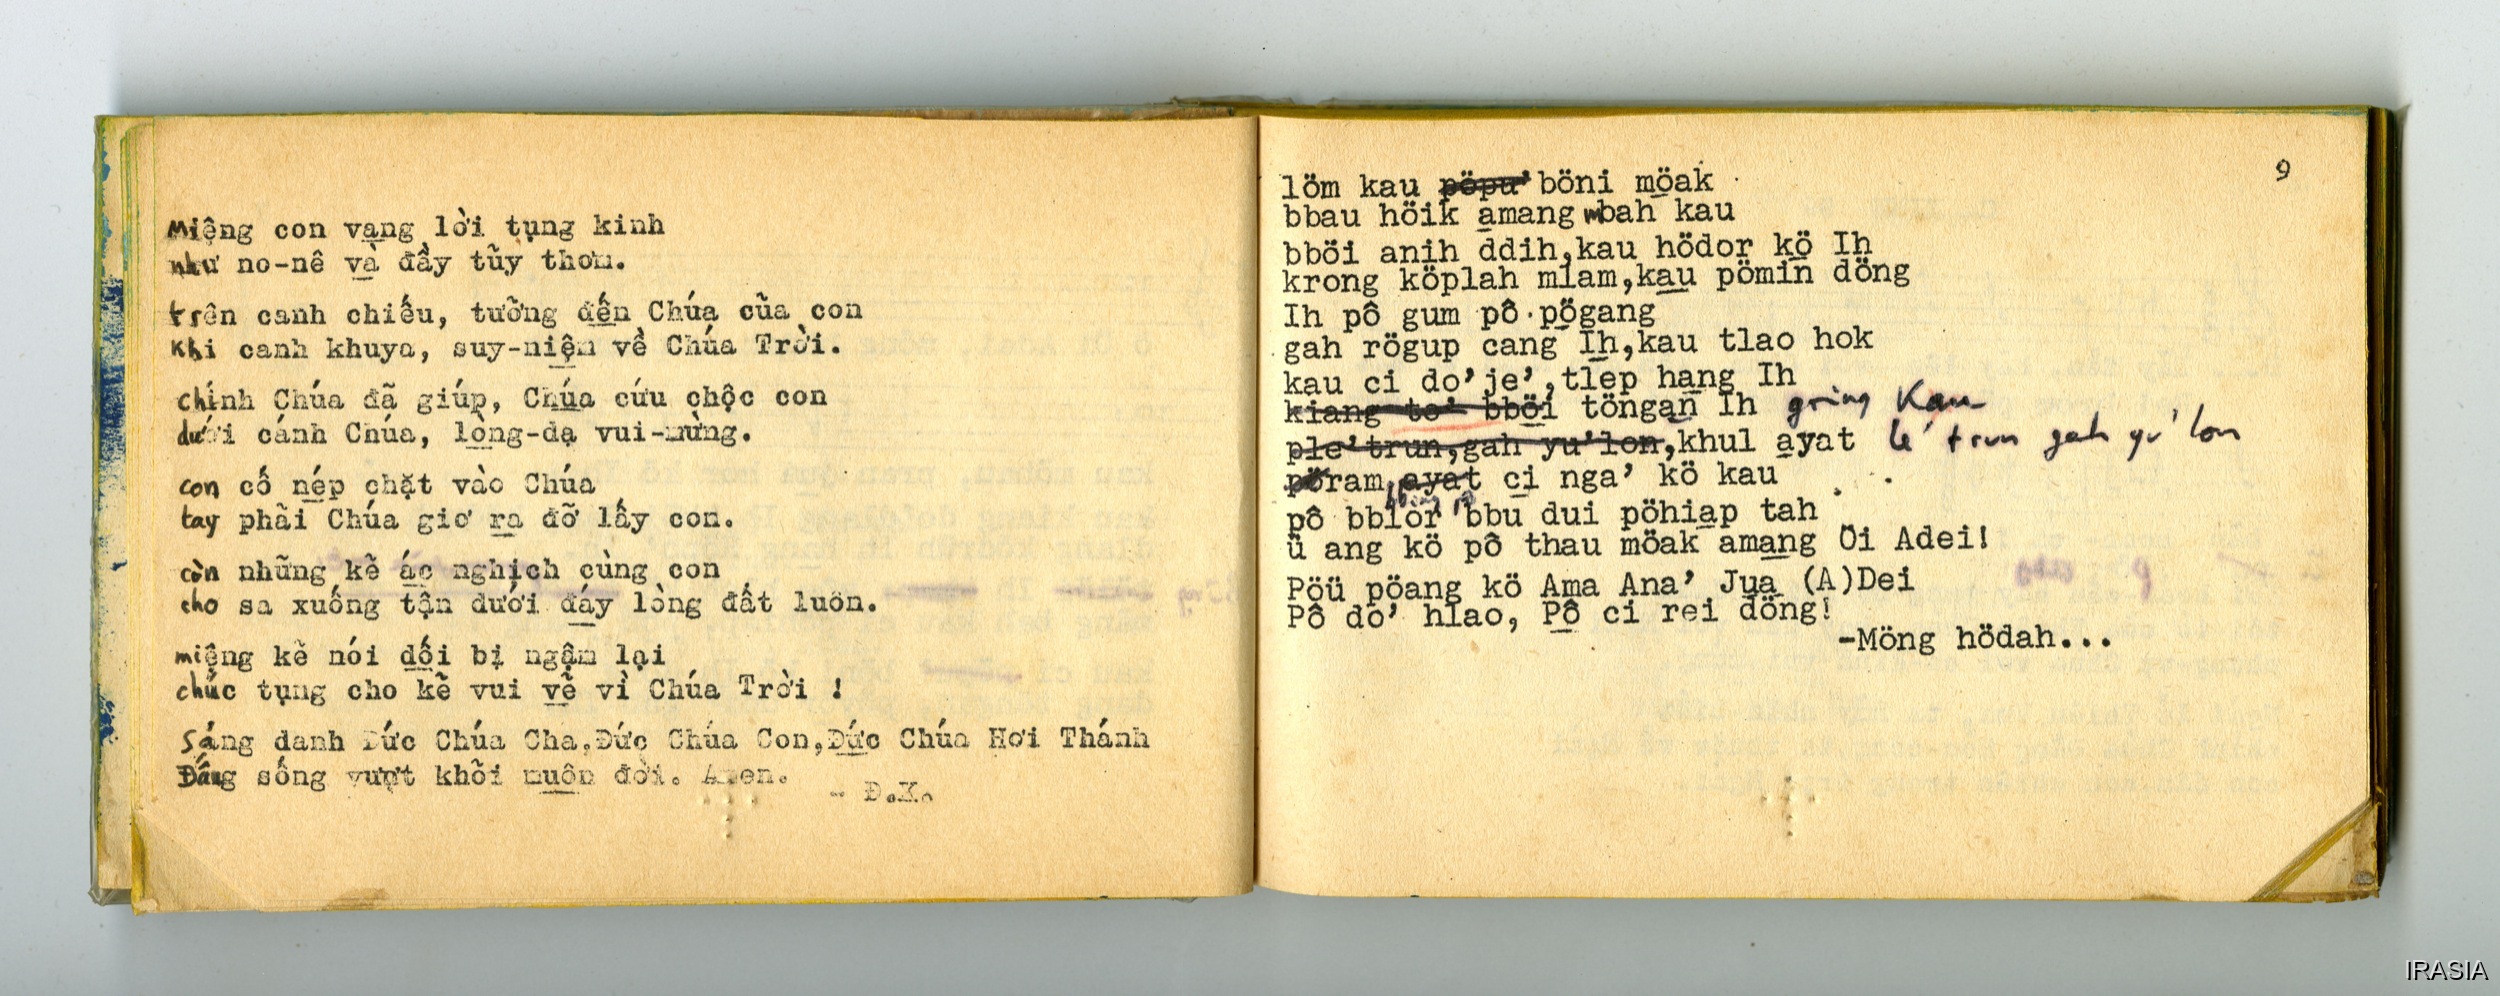 Miệng con vang lời tụng kinh
như no-nê và đầy tũy thơm.
trên canh chiếu, tưởng đến Chúa cũa con
Khi canh khuya, suy-niệm về Chúa Trời.
chính Chúa đã giúp, Chúa cứu chộc con
dưới cánh Chúa, lòng-dạ vui-mừng.
con cố nép chặt vào Chúa
tay phãi Chúa giơ ra đỡ lấy con.
còn những kẽ ác nghịch cùng con
cho sa xuống tận dưới đáy lòng đất luôn.
miệng kẽ nói dối bị ngậm lại
chúc tụng cho kẽ vui vẽ vì Chúa Trời !
Sáng danh Đức Chúa Cha,Đức Chúa Con,Đức Chúa Hơi Thánh
Đấng sống vượt khõi muôn đời. Amen.
- Đ.X.
9
löm kau pöpu' böni möak
bbau höik amang mbah kau
bböi anih ddih,kau hödor kö Ih
krong köplah mlam,kau pömin döng
Ih pô gum pô pögang
gah rögup cang Ih,kau tlao hok
kau ci do'je',tlep hang Ih
kiang to' bböi töngan Ih gring Kau
ple'trun,gah yu'lon,khul ayat lê' trun gah yu' lon
pöram ayat ci nga' kö kau
pô bblör bbu dui pöhiap tah
ü ang kö pô thau möak amang Oi Adei!
Pöü pöang kö Ama Ana' Jua (A)Dei
Pô do' hlao, Pô ci rei döng!
-Möng hödah...
IRASIA